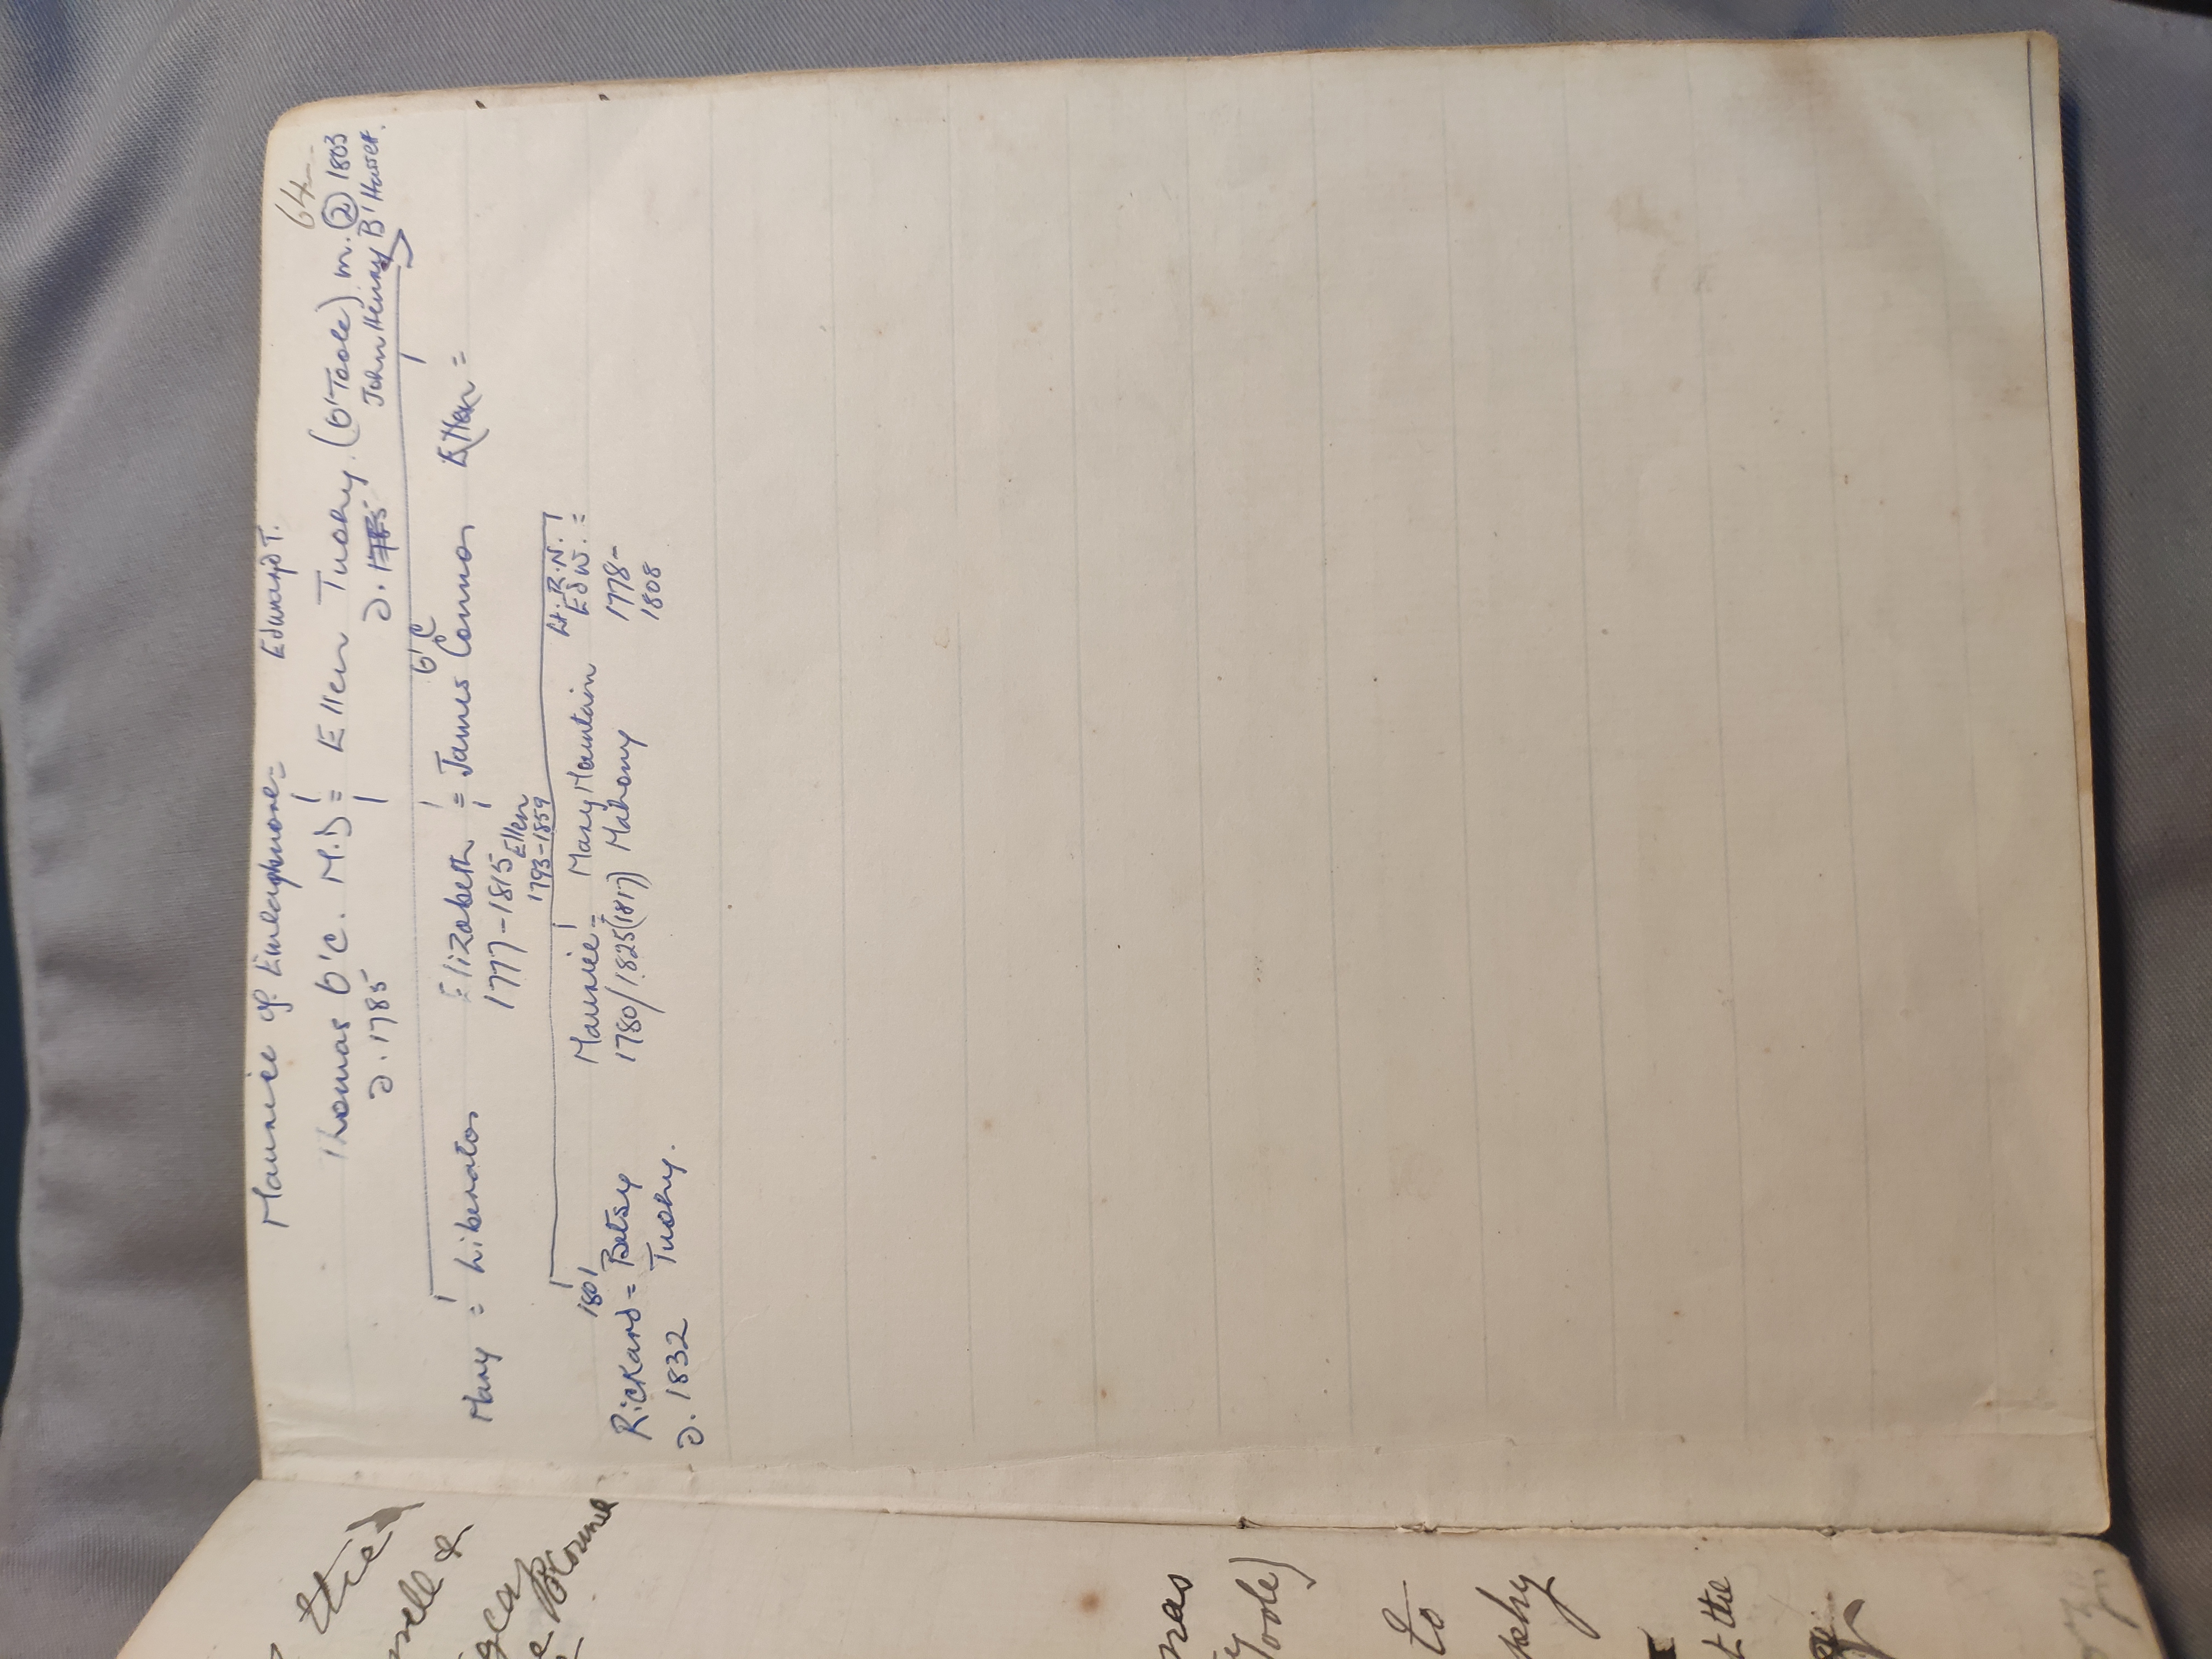 64
Maurice of Emlaghmore = Edward T.
Thomas O'C. M.D = Ellen Tuohy. (O'Toole) m. ② 1803
d. 1785 d. John Henry B'Hasset.
O'C
Mary = Liberator Elizabeth = James Connor Ellen =
1777-1815
Ellen
1793-1859
Lt. R.N.
1801 Maurice = Mary Mountain Edw. =
Rickard = Betsy 1780/1825(1817) Mahony 1778-
d. 1832 Tuohy. 1808
& 
was
to
phy
t the